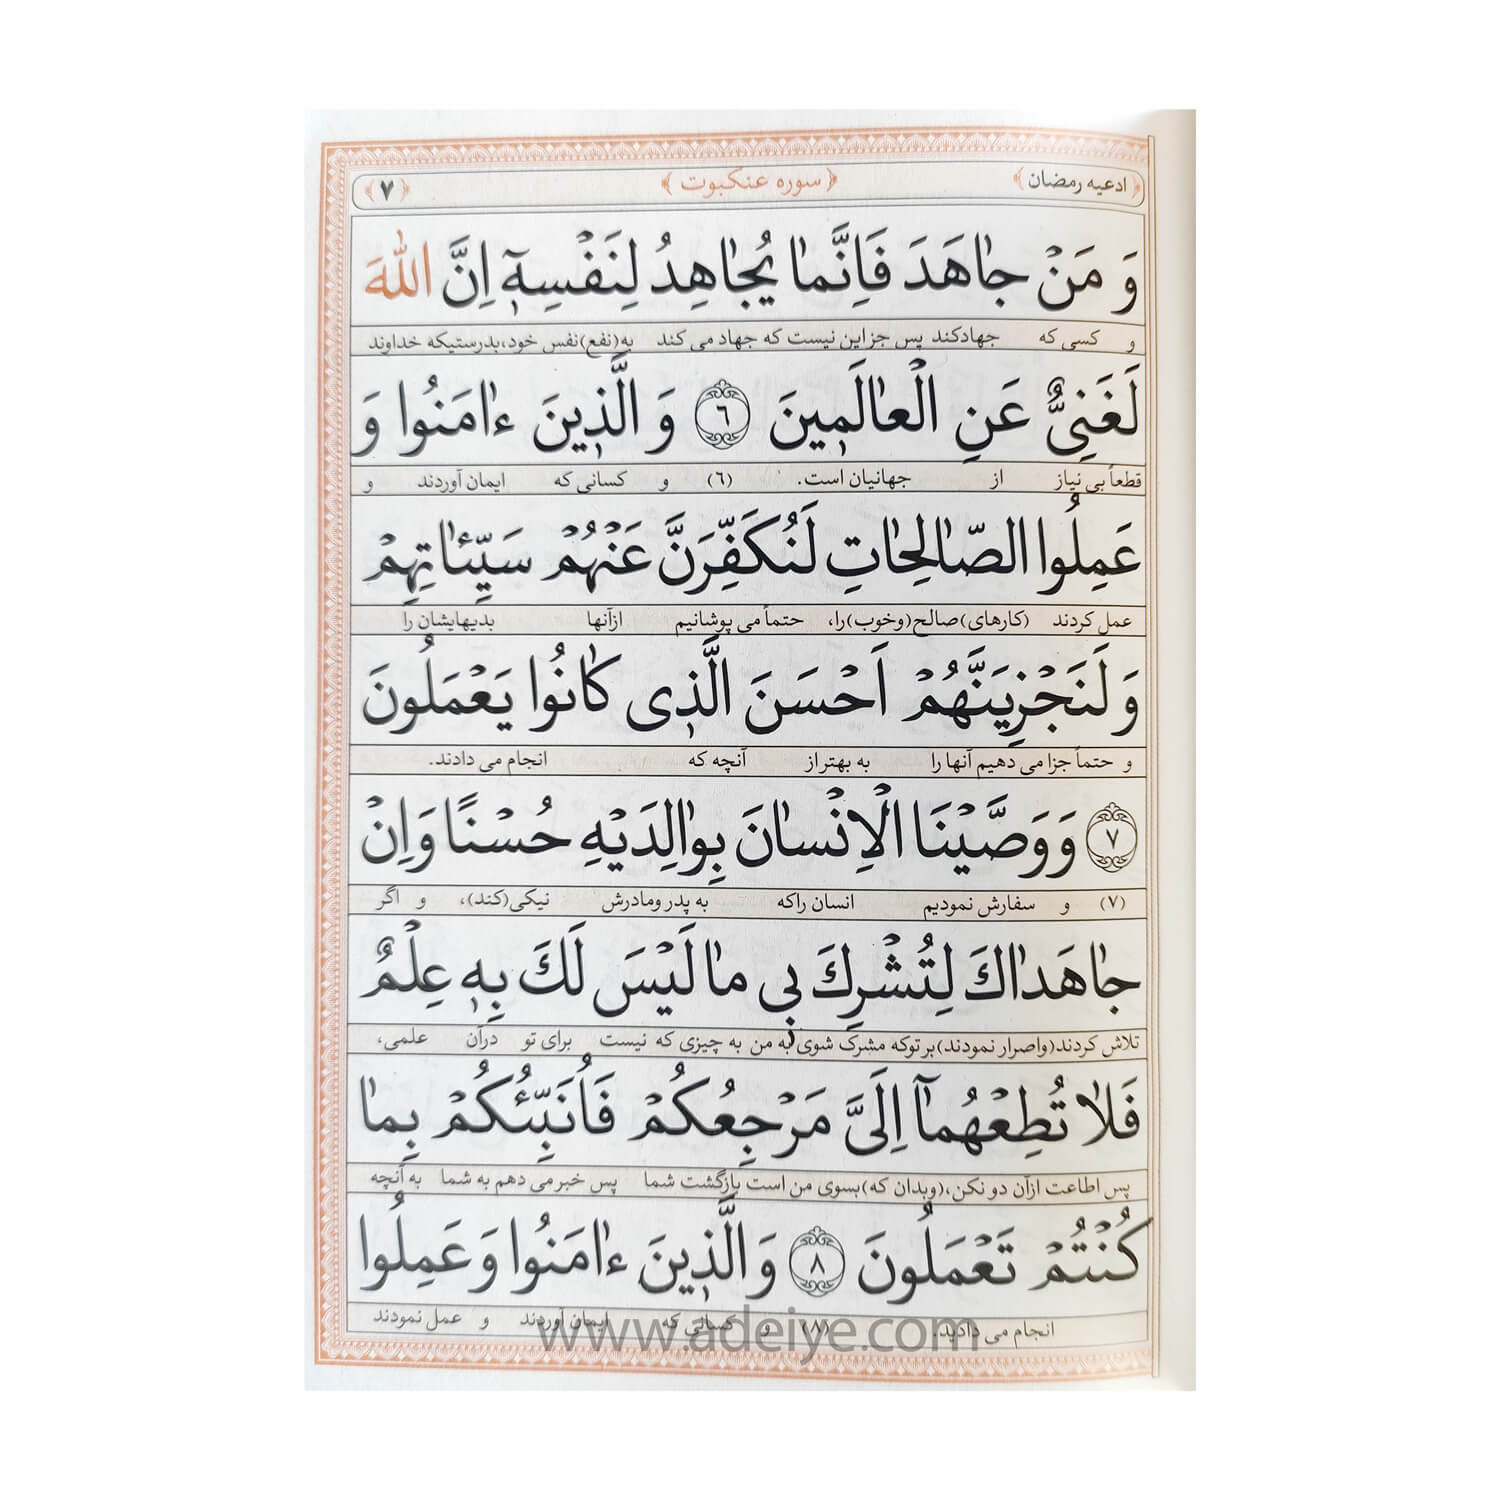 ادعیه رمضان سوره عنکبوت ۷
وَ مَنْ جاهَدَ فَاِنَّما يُجاهِدُ لِنَفْسِهٖٓ اِنَّ اللّٰهَ
و کسی که جهادکند پس جز این نیست که جهاد می کند به(نفع)نفس خود،بدرستیکه خداوند
لَغَنِىٌّ عَنِ الْعالَمينَ ﴿٦﴾ وَ الَّذينَ ءامَنُوا وَ
قطعاً بی نیاز از جهانیان است. (٦) و کسانی که ایمان آوردند و
عَمِلُوا الصّالِحاتِ لَنُكَفِّرَنَّ عَنْهُمْ سَيِّـٔاتِهِمْ
عمل کردند (کارهای)صالح(وخوب)را، حتماً می پوشانیم ازآنها بدیهایشان را
وَ لَنَجْزِيَنَّهُمْ اَحْسَنَ الَّذى كانُوا يَعْمَلُونَ
و حتماً جزا می دهیم آنها را به بهتر از آنچه که انجام می دادند.
﴿٧﴾ وَ وَصَّيْنَا الْاِنْسانَ بِوالِدَيْهِ حُسْنًا وَ اِنْ
(۷) و سفارش نمودیم انسان راکه به پدر ومادرش نیکی(کند)، و اگر
جاهَداكَ لِتُشْرِكَ بى ما لَيْسَ لَكَ بِهٖ عِلْمٌ
تلاش کردند(واصرار نمودند)بر توکه مشرک شوی به من به چیزی که نیست برای تو درآن علمی،
فَلا تُطِعْهُمآ اِلَىَّ مَرْجِعُكُمْ فَاُنَبِّئُكُمْ بِما
پس اطاعت ازآن دو نکن،(وبدان که)بسوی من است بازگشت شما پس خبر می دهم به شما به آنچه
كُنْتُمْ تَعْمَلُونَ ﴿٨﴾ وَ الَّذينَ ءامَنُوا وَ عَمِلُوا
انجام می دادید. (۸) و کسانی که ایمان آوردند و عمل نمودند
www.adeiye.com